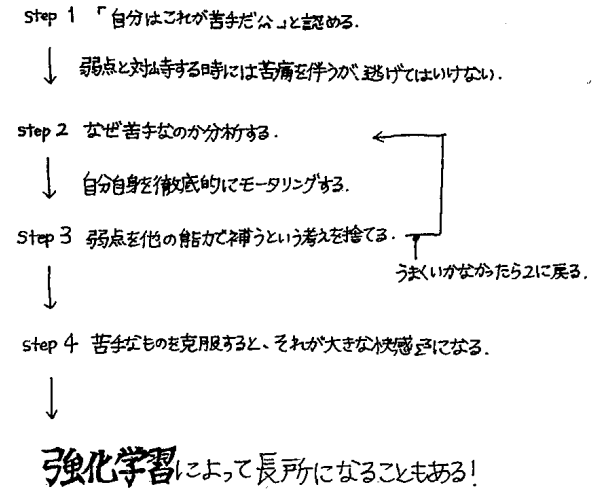 step 1 「自分はこれが苦手だ公」と認める.
弱点と対峙する時には苦痛を伴うが、逃げてはいけない.
step 2 なぜ苦手なのか分析する.
自分自身を徹底的にモータリングする.
step 3 弱点を他の能力で補うという考えを捨てる.
うまくいかなかったら2に戻る.
step 4 苦手なものを克服すると、それが大きな快感になる.
強化学習によって長所になることもある!